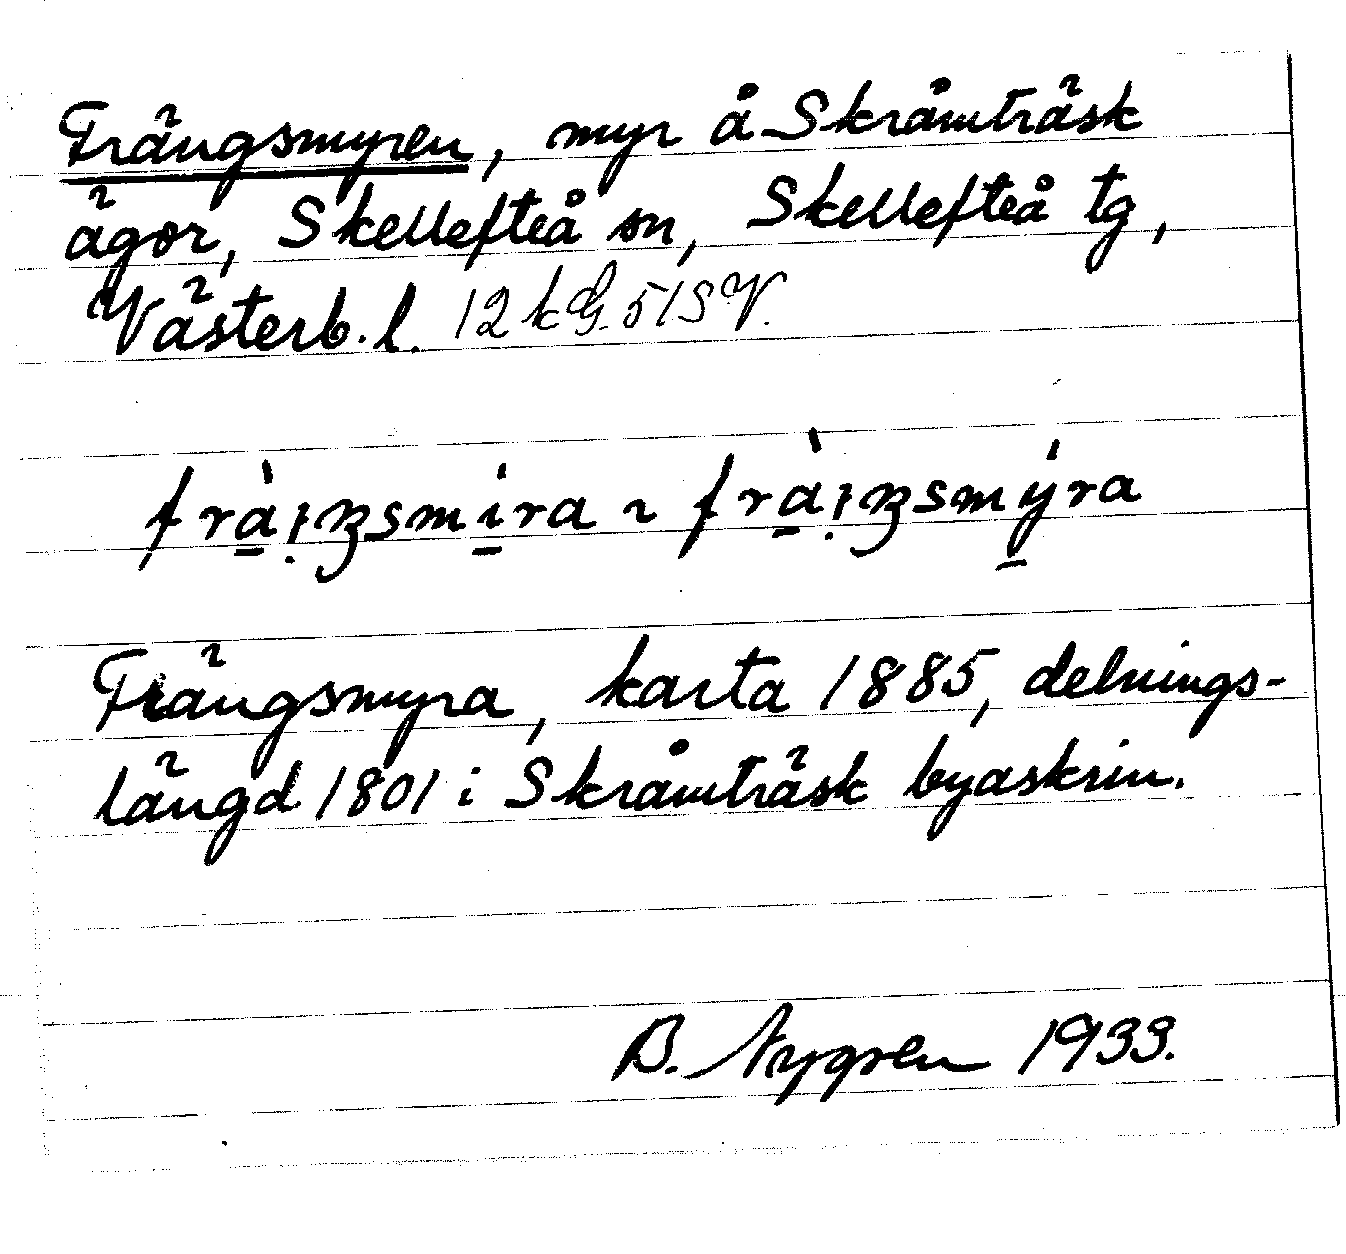 Frängsmyren, myr å Skråmträsk
ägor, Skellefteå sn, Skellefteå tg,
Västerb. l. 12 k G. 5 1 S V.
Frängsmyra, karta 1885, delnings-
längd 1801 i Skråmträsk byaskrin.
B. Nygren 1933.